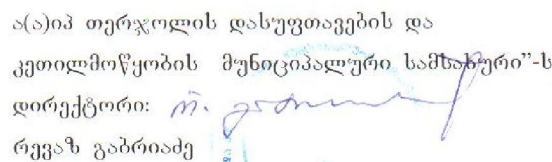 ა(ა)იპ თერჯოლის დასუფთავების და
კეთილმოწყობის მუნიციპალური სამსახური"-ს
დირექტორი:
რევაზ გაბრიაძე